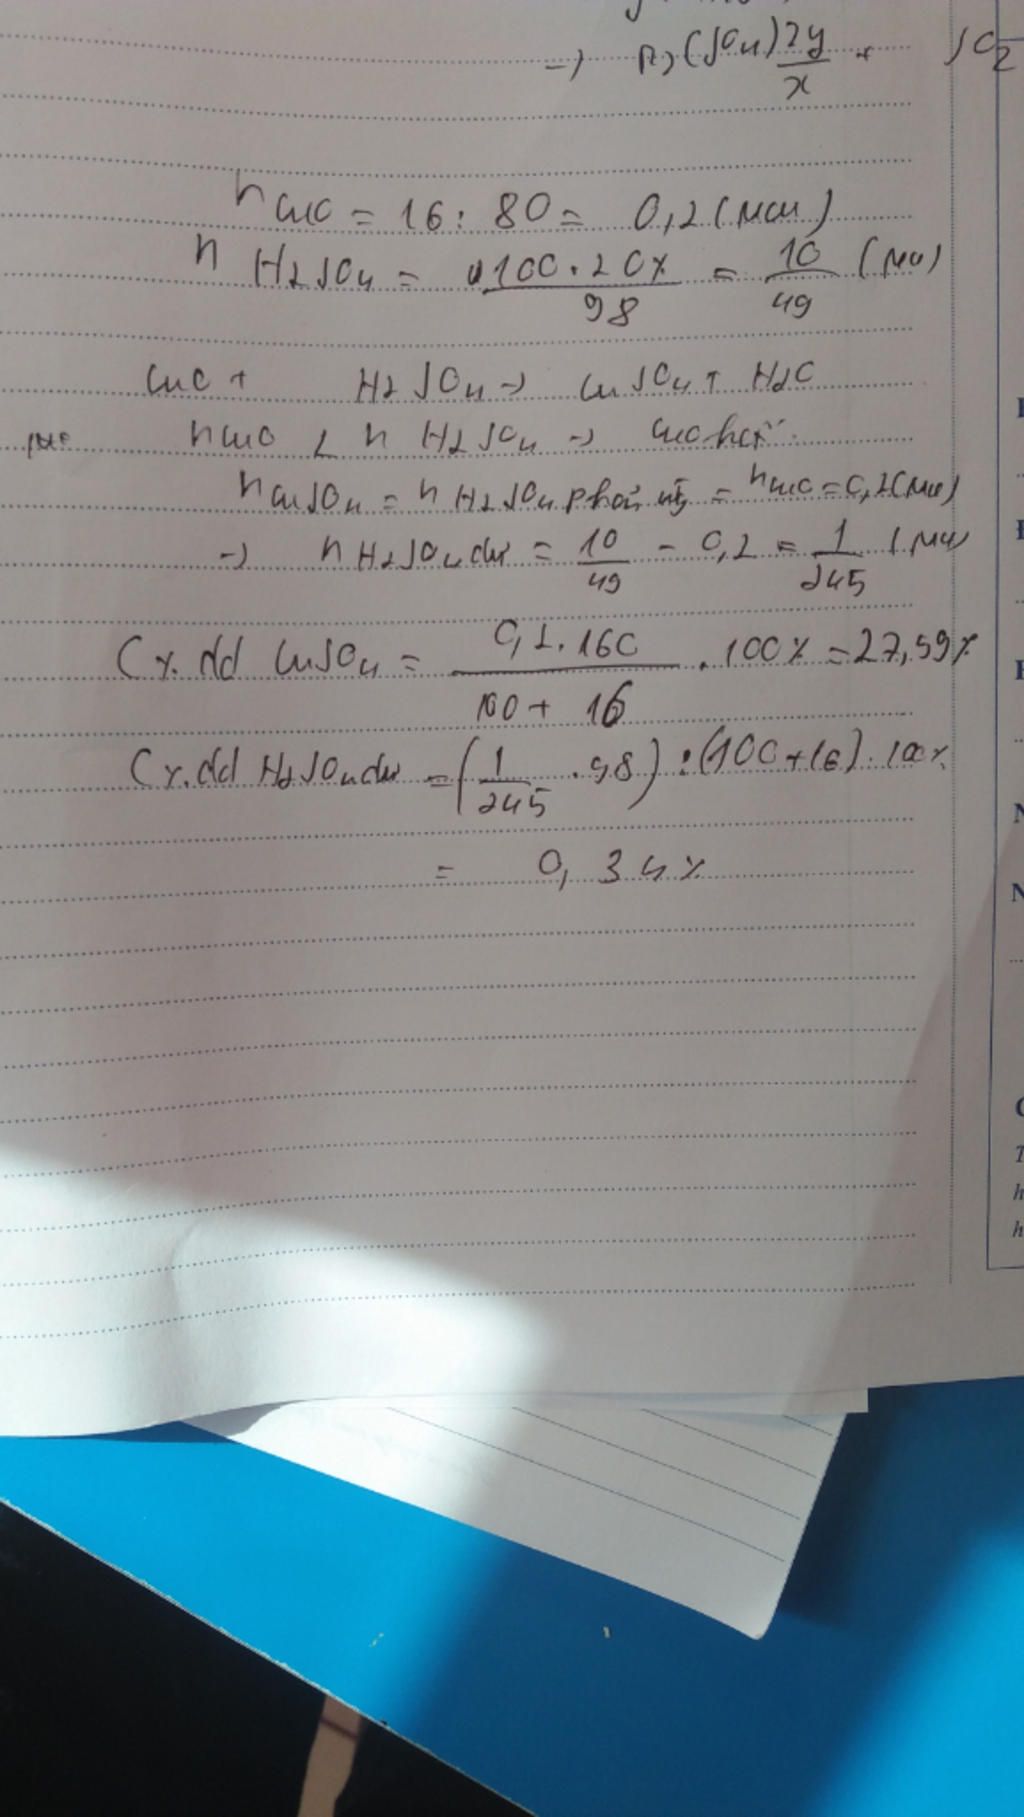 → R₂(SO₄)2y/x + SO₂
nCuO = 16 : 80 = 0,2 (mol)
n H₂SO₄ = 100.20% / 98 = 10/49 (mol)
CuO + H₂SO₄ → CuSO₄ + H₂O
nCuO < n H₂SO₄ → CuO hết
nCuSO₄ = n H₂SO₄ phản ứng = nCuO = 0,2 (mol)
→ n H₂SO₄ dư = 10/49 - 0,2 = 1/245 (mol)
C%.dd CuSO₄ = 0,2.160 / 100 + 16 . 100% = 27,59%
C%.dd H₂SO₄ dư = (1/245 . 98) : (100 + 16) . 100%
= 0,34%